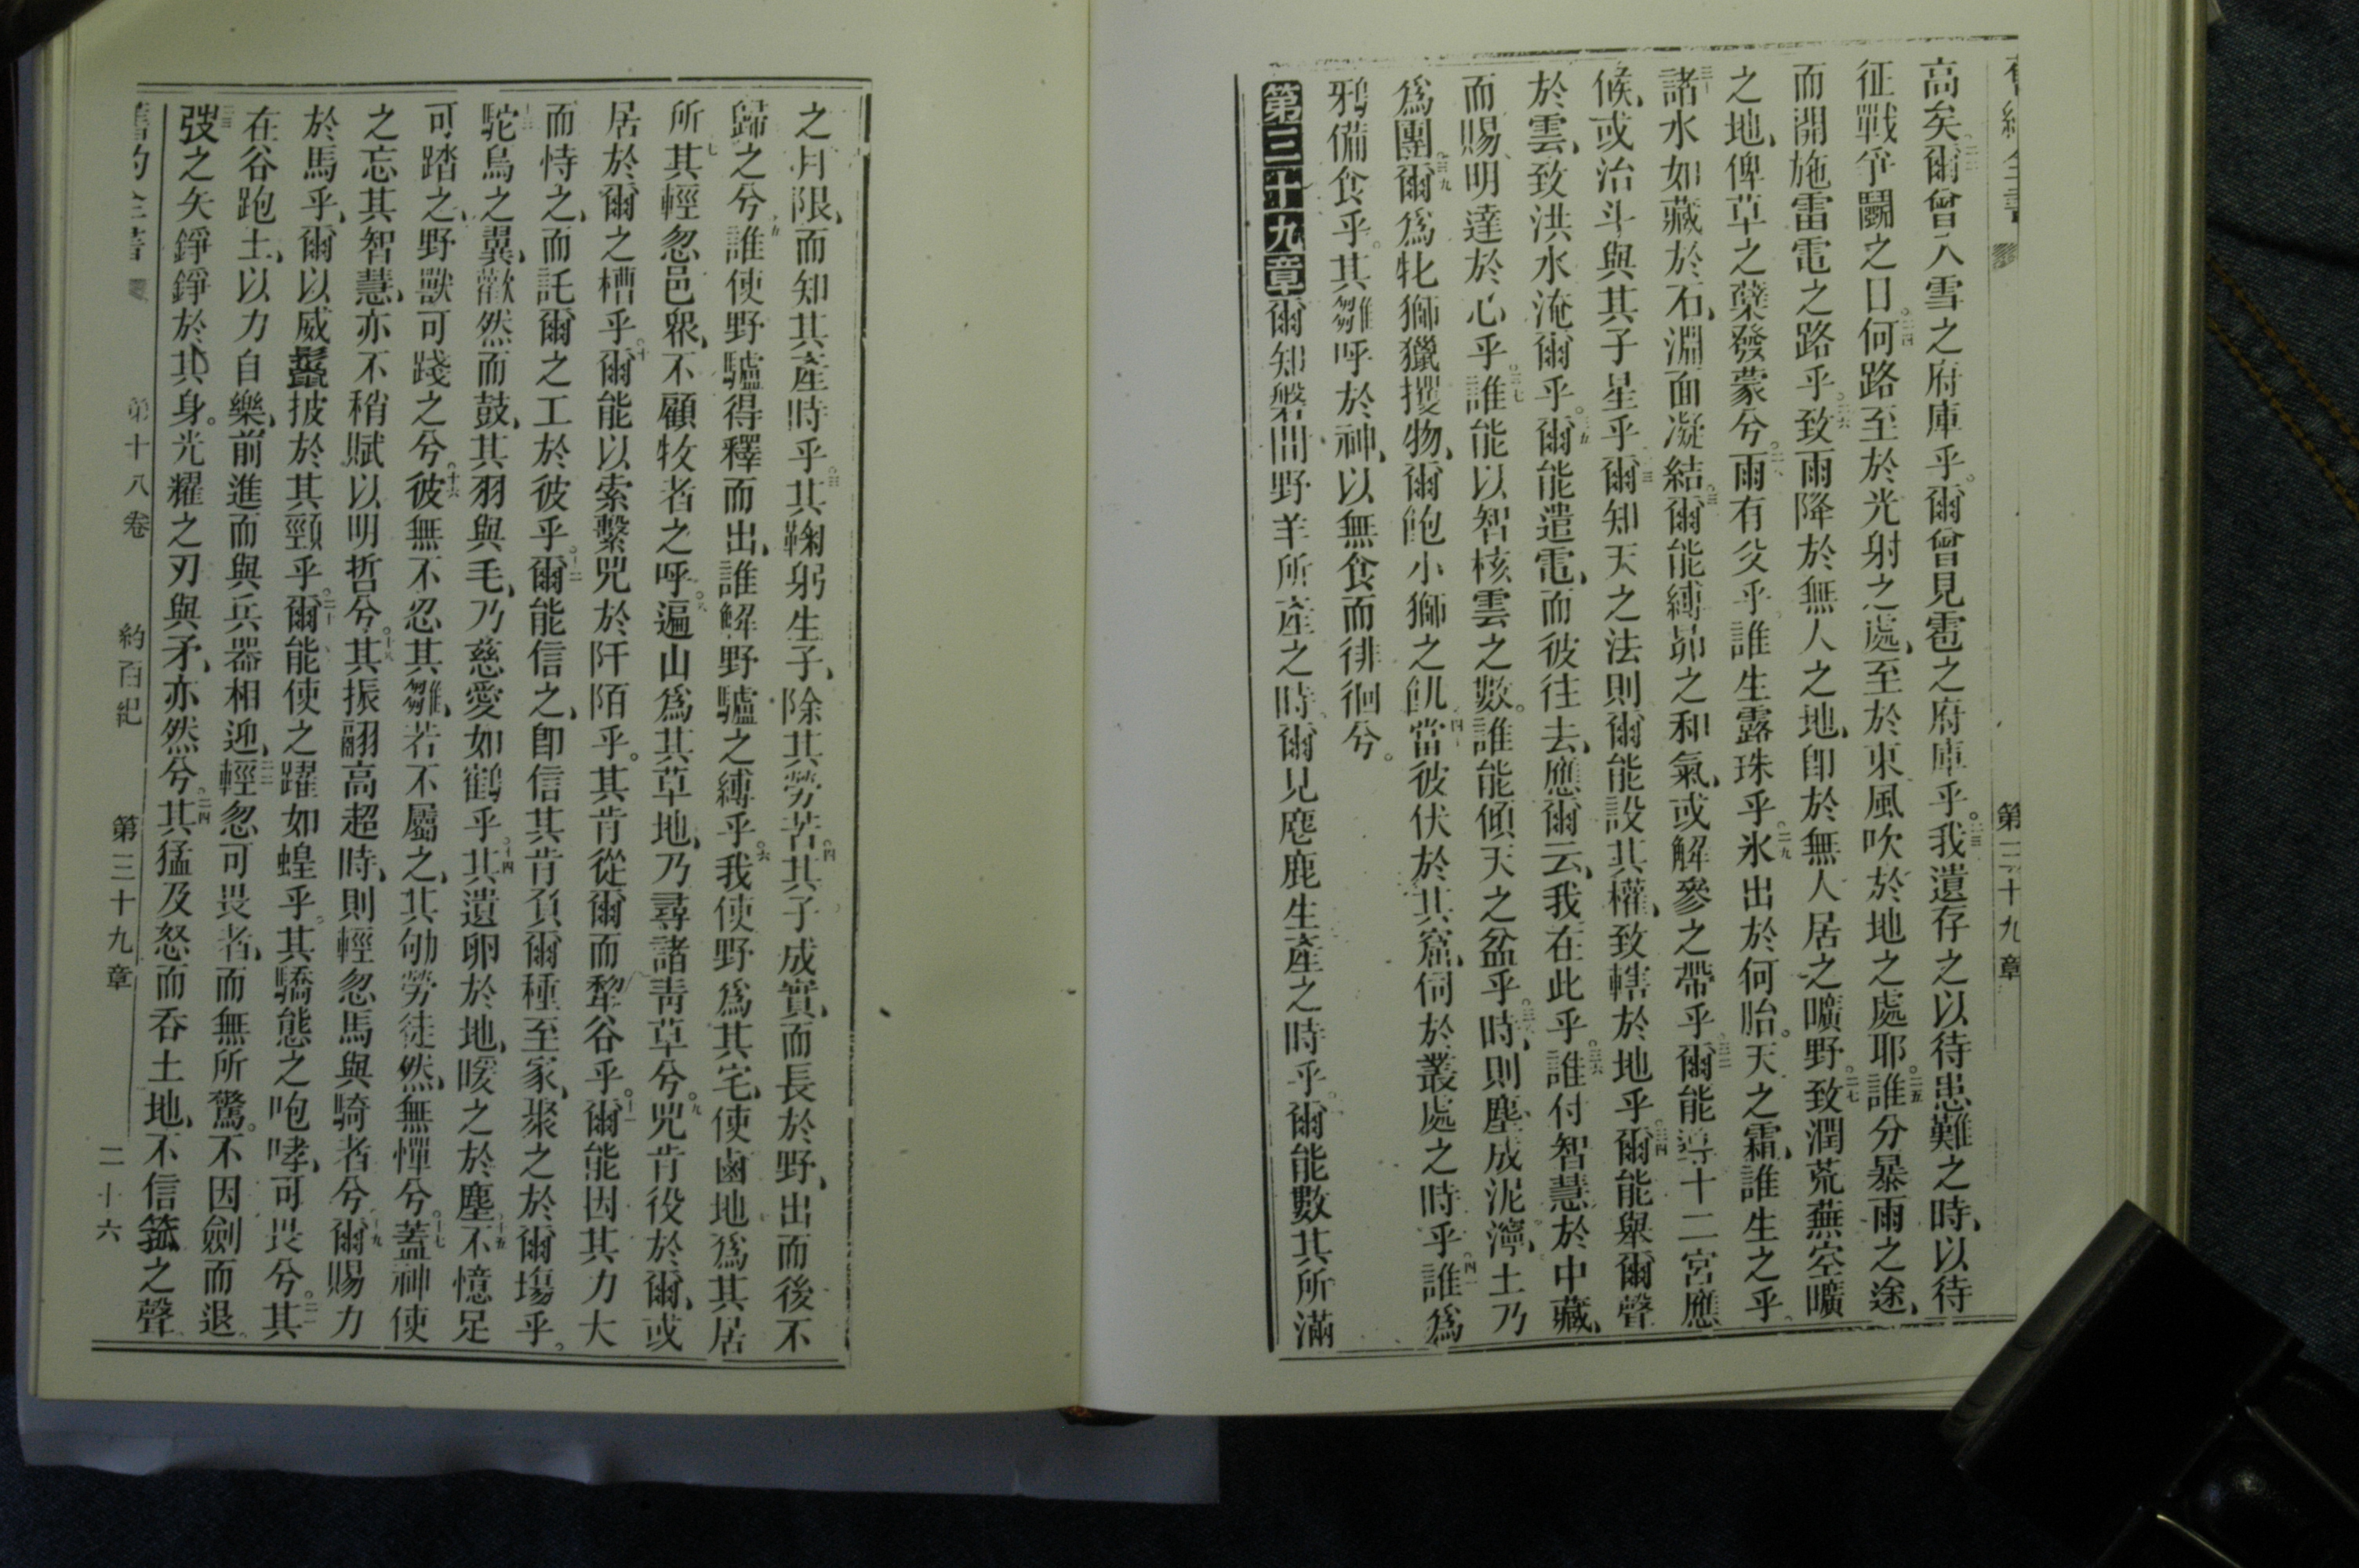 第三十九章
高矣爾曾入雪之府庫乎爾曾見雹之府庫乎我遺存之以待患難之時以待
征戰爭鬭之日何路至於光射之處至於東風吹於地之處耶誰分暴雨之途
而開施雷電之路乎致雨降於無人之地卽於無人居之曠野致潤荒蕪空曠
之地俾草之蘖發蒙兮雨有父乎誰生露珠乎氷出於何胎天之霜誰生之乎
諸水如藏於石淵面凝結爾能縛昴之和氣或解參之帶乎爾能導十二宮應
候或治斗與其子星乎爾知天之法則爾能設其權致轄於地乎爾能舉爾聲
於雲致洪水淹爾乎爾能遣電而彼往去應爾云我在此乎誰付智慧於中藏
而賜明達於心乎誰能以智核雲之數誰能傾天之盆乎時則塵成泥濘土乃
爲團爾爲牝獅獵攫物爾飽小獅之飢當彼伏於其窟伺於叢處之時乎誰爲
鴉備食乎其雛呼於神以無食而徘徊兮
第三十九章爾知磐間野羊所產之時爾見麀鹿生產之時乎爾能數其所滿
之月限而知其產時乎其鞠躬生子除其勞苦其子成實而長於野出而後不
歸之兮誰使野驢得釋而出誰解野驢之縛乎我使野爲其宅使鹵地爲其居
所其輕忽邑衆不顧牧者之呼遍山爲其草地乃尋諸靑草兮兕肯役於爾或
居於爾之槽乎爾能以索繫兕於阡陌乎其肯從爾而犂谷乎爾能因其力大
而恃之而託爾之工於彼乎爾能信之卽信其肯負爾種至家聚之於爾塲乎
駝鳥之翼歡然而鼓其羽與毛乃慈愛如鶴乎其遺卵於地暖之於塵不憶足
可踏之野獸可踐之兮彼無不忍其雛若不屬之其劬勞徒然無憚兮蓋神使
之忘其智慧亦不稍賦以明哲兮其振翮高超時則輕忽馬與騎者兮爾賜力
於馬乎爾以威鬣披於其頸乎爾能使之躍如蝗乎其驕態之咆哮可畏兮其
在谷跑土以力自樂前進而與兵器相迎輕忽可畏者而無所驚不因劍而退
弢之矢錚錚於其身光耀之刃與矛亦然兮其猛及怒而吞土地不信箛之聲
第十八卷 約百紀 第三十九章 二十六